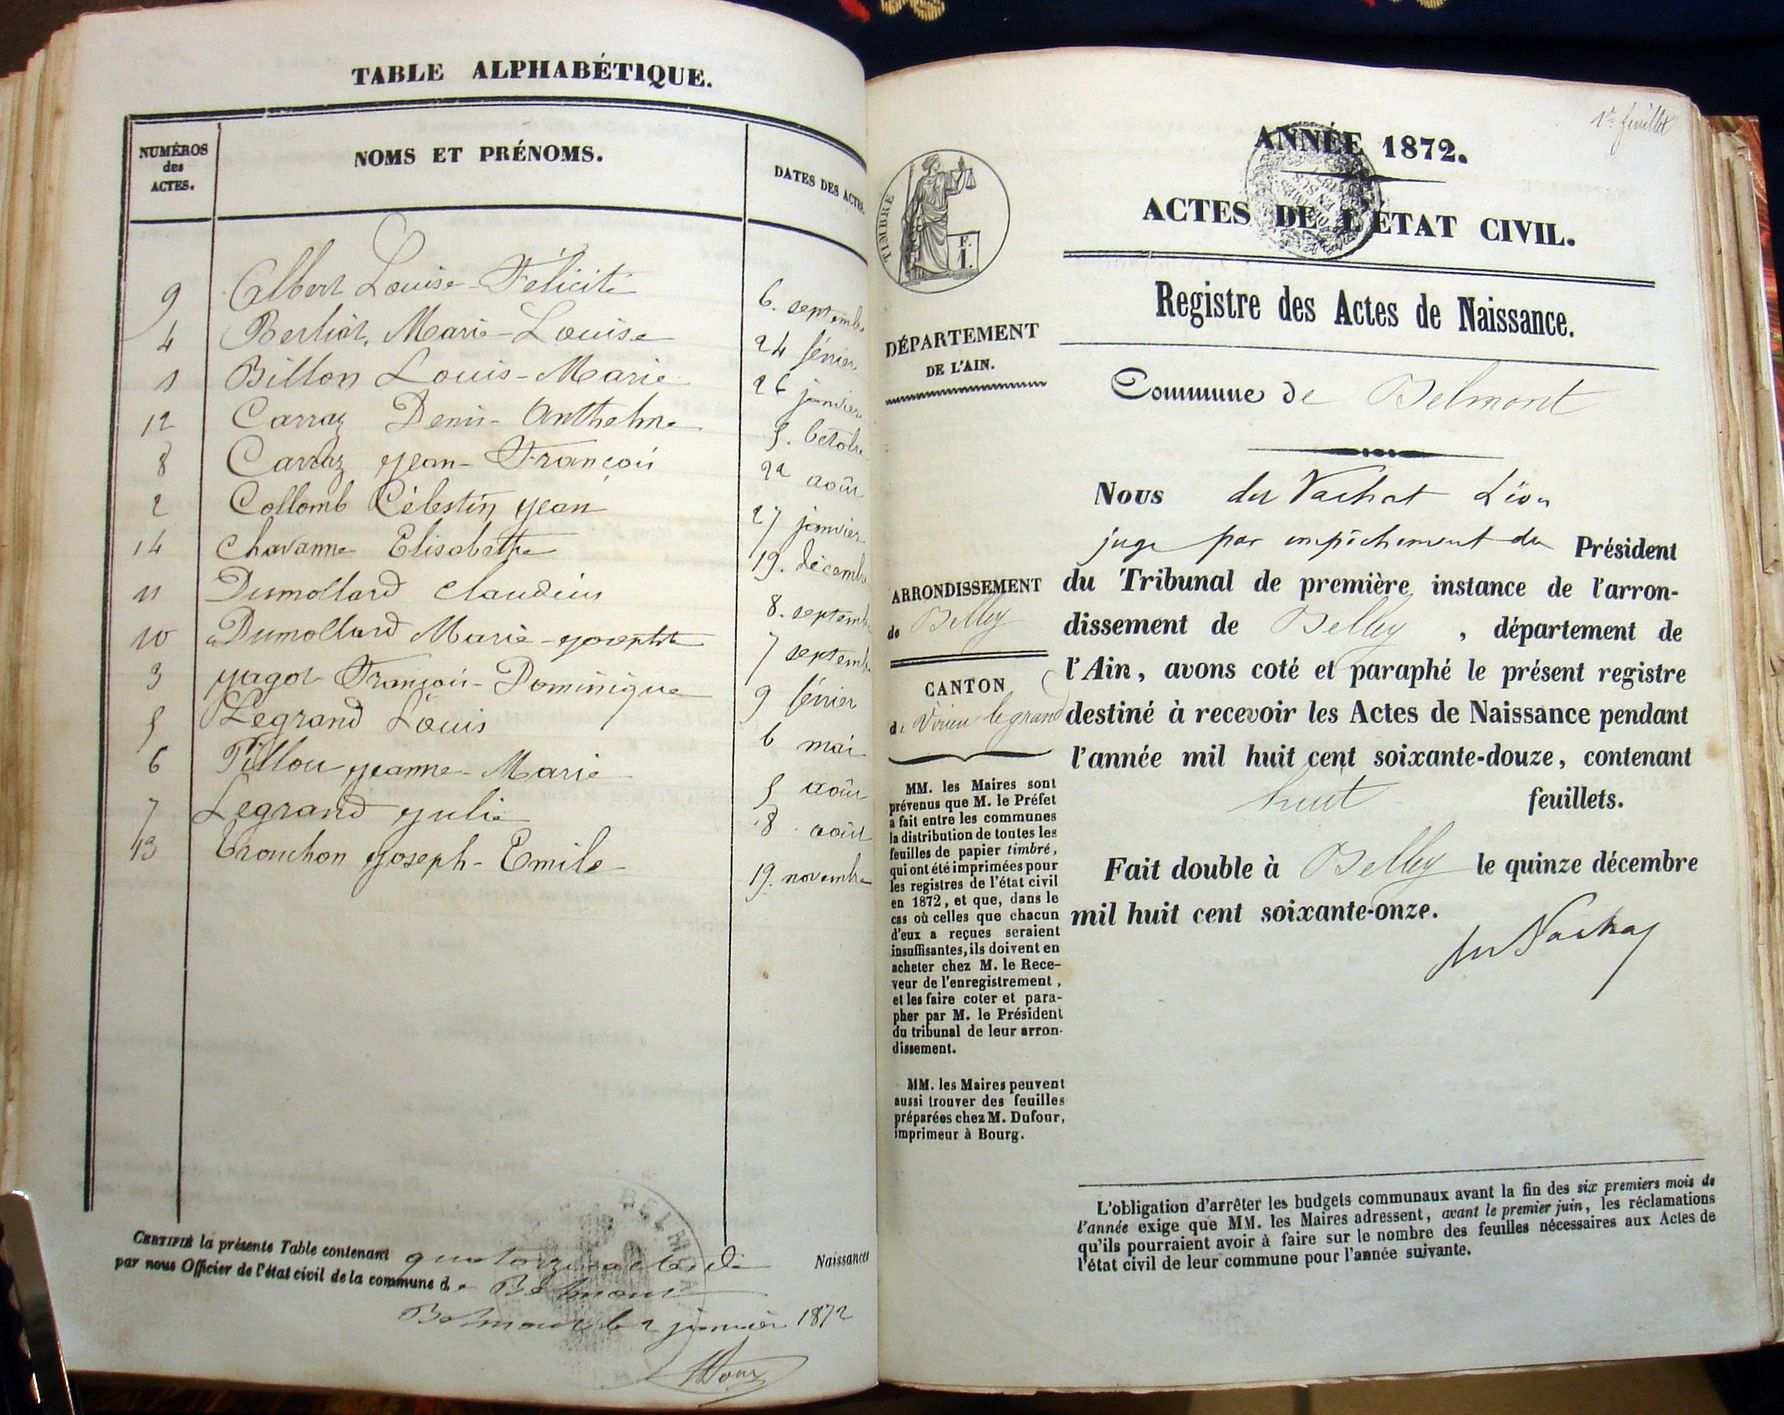 TABLE ALPHABÉTIQUE.
NUMÉROS des ACTES. NOMS ET PRÉNOMS. DATES DES ACTES.
9 Albert Louise-Félicité 6. septembre
4 Berliat, Marie-Louise 24 février
1 Billon Louis-Marie 26 janvier
12 Carraz Denis-Anthelme 5. octobre
8 Carraz Jean-François 22 août
2 Collomb Célestin Jean 27 janvier
14 Chavanne Elisabethe 19. décembre
11 Dumollard Claudius 8. septembre
10 Dumollard Marie-Josephte 7 septembre
3 Jagot François-Dominique 9 février
5 Legrand Louis 6 mai
6 Tillou Jeanne-Marie 5 août
7 Legrand Julie 8 août
13 Tronchon Joseph-Emile 19. novembre
CERTIFIÉ la présente Table contenant quatorze actes de Naissances
par nous Officier de l'état civil de la commune de Belmont
Belmont le 2 janvier 1872
1er feuillet
ANNÉE 1872.
ACTES DE L'ETAT CIVIL.
Registre des Actes de Naissance.
TIMBRE
F.
1.
DÉPARTEMENT
DE L'AIN.
Commune de Belmont
Nous du Vachat Léon
juge par empêchement du Président
du Tribunal de première instance de l'arron-
dissement de Belley, département de
l'Ain, avons coté et paraphé le présent registre
destiné à recevoir les Actes de Naissance pendant
l'année mil huit cent soixante-douze, contenant
huit feuillets.
Fait double à Belley le quinze décembre
mil huit cent soixante-onze.
du Vachat
ARRONDISSEMENT
de Belley
CANTON
de Virieu le grand
MM. les Maires sont
prévenus que M. le Préfet
a fait entre les communes
la distribution de toutes les
feuilles de papier timbré,
qui ont été imprimées pour
les registres de l'état civil
en 1872, et que, dans le
cas où celles que chacun
d'eux a reçues seraient
insuffisantes, ils doivent en
acheter chez M. le Rece-
veur de l'enregistrement,
et les faire coter et para-
pher par M. le Président
du tribunal de leur arron-
dissement.
MM. les Maires peuvent
aussi trouver des feuilles
préparées chez M. Dufour,
imprimeur à Bourg.
L'obligation d'arrêter les budgets communaux avant la fin des six premiers mois de
l'année exige que MM. les Maires adressent, avant le premier juin, les réclamations
qu'ils pourraient avoir à faire sur le nombre des feuilles nécessaires aux Actes de
l'état civil de leur commune pour l'année suivante.